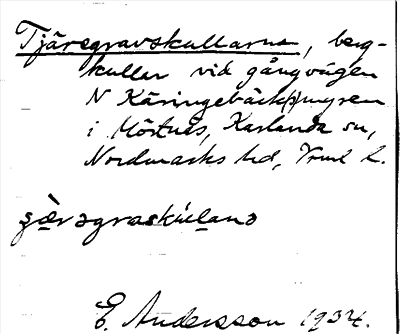 Tjäregravskullarna, berg-
kullar vid gångvägen
N Käringebäck(s)myren
i Möstnes, Karlanda sn,
Nordmarks hd, Vrml l.
E. Andersson 1934.